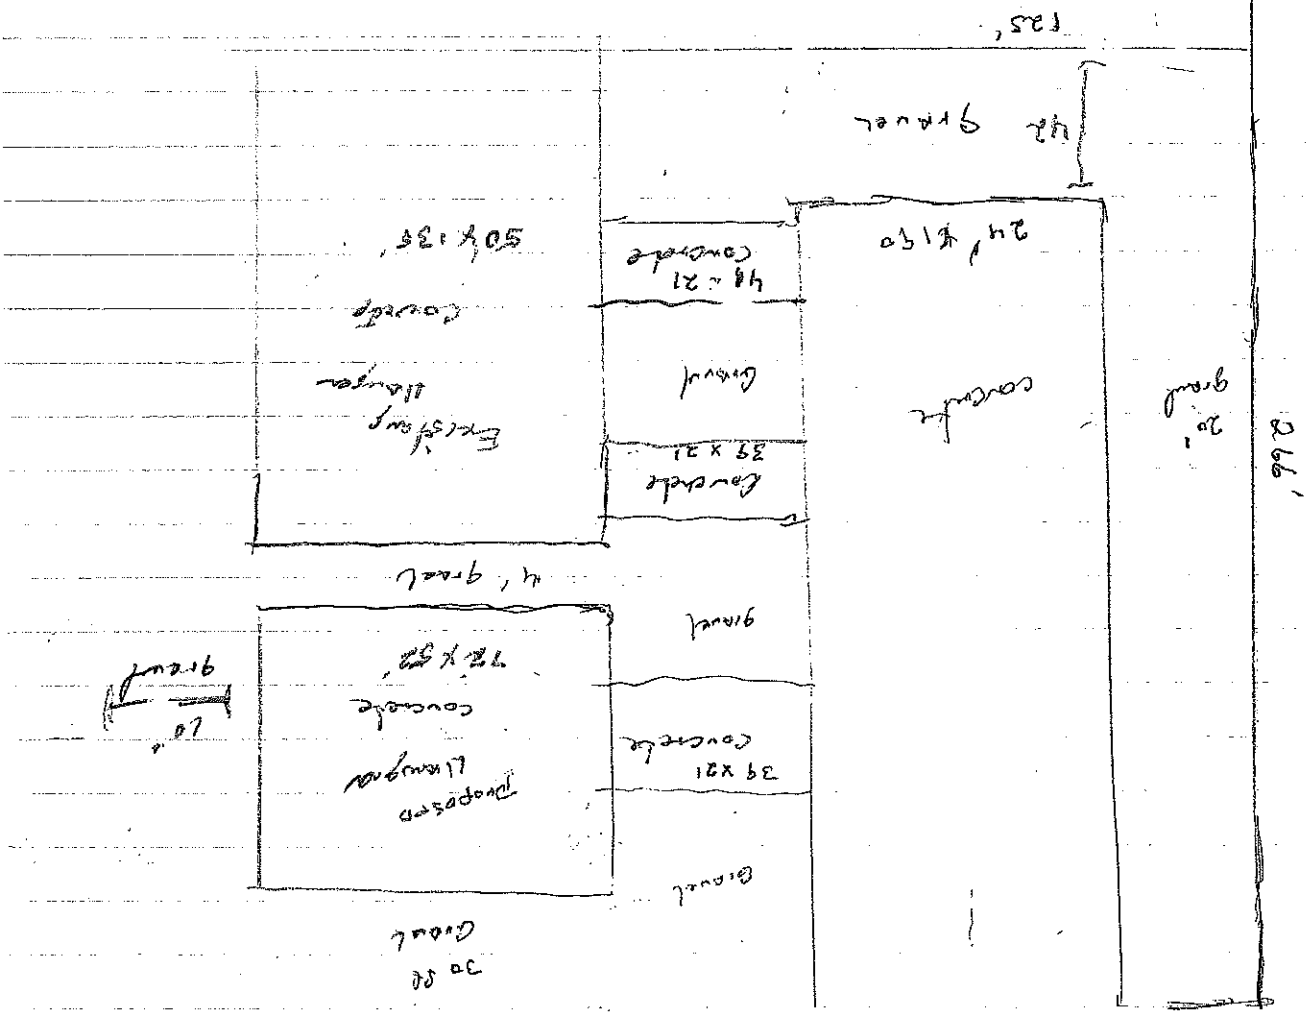 30 ft
Gravel
Gravel
Proposed
Hangar
concrete
72 x 52'
10'
gravel
39 x 21
concrete
gravel
4' gravel
Concrete
39 x 21
Existing
Hanger
50 x 135'
Gravel
48 x 21
concrete
concrete
24' x 190
20'
gravel
266'
42
gravel
125'